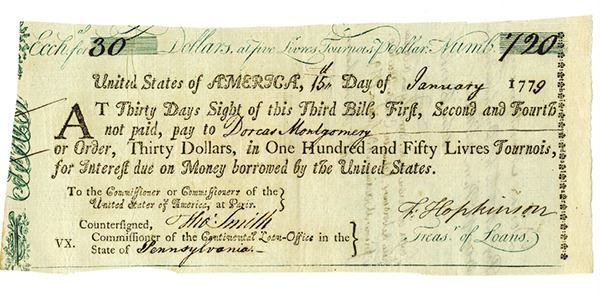 Exch. for 30 Dollars, at five Livres Tournois ꝑ Dollar. Numb. 720
United States of AMERICA, 15th Day of January 1779
AT Thirty Days Sight of this Third Bill, First, Second and Fourth
not paid, pay to Dorcas Montgomery
or Order, Thirty Dollars, in One Hundred and Fifty Livres Tournois,
for Interest due on Money borrowed by the United States.
To the Commissioner or Commissioners of the
United States of America, at Paris.
Countersigned, Tho. Smith
VX. Commissioner of the Continental Loan-Office in the
State of Pennsylvania.
F. Hopkinson
Treasr. of Loans.